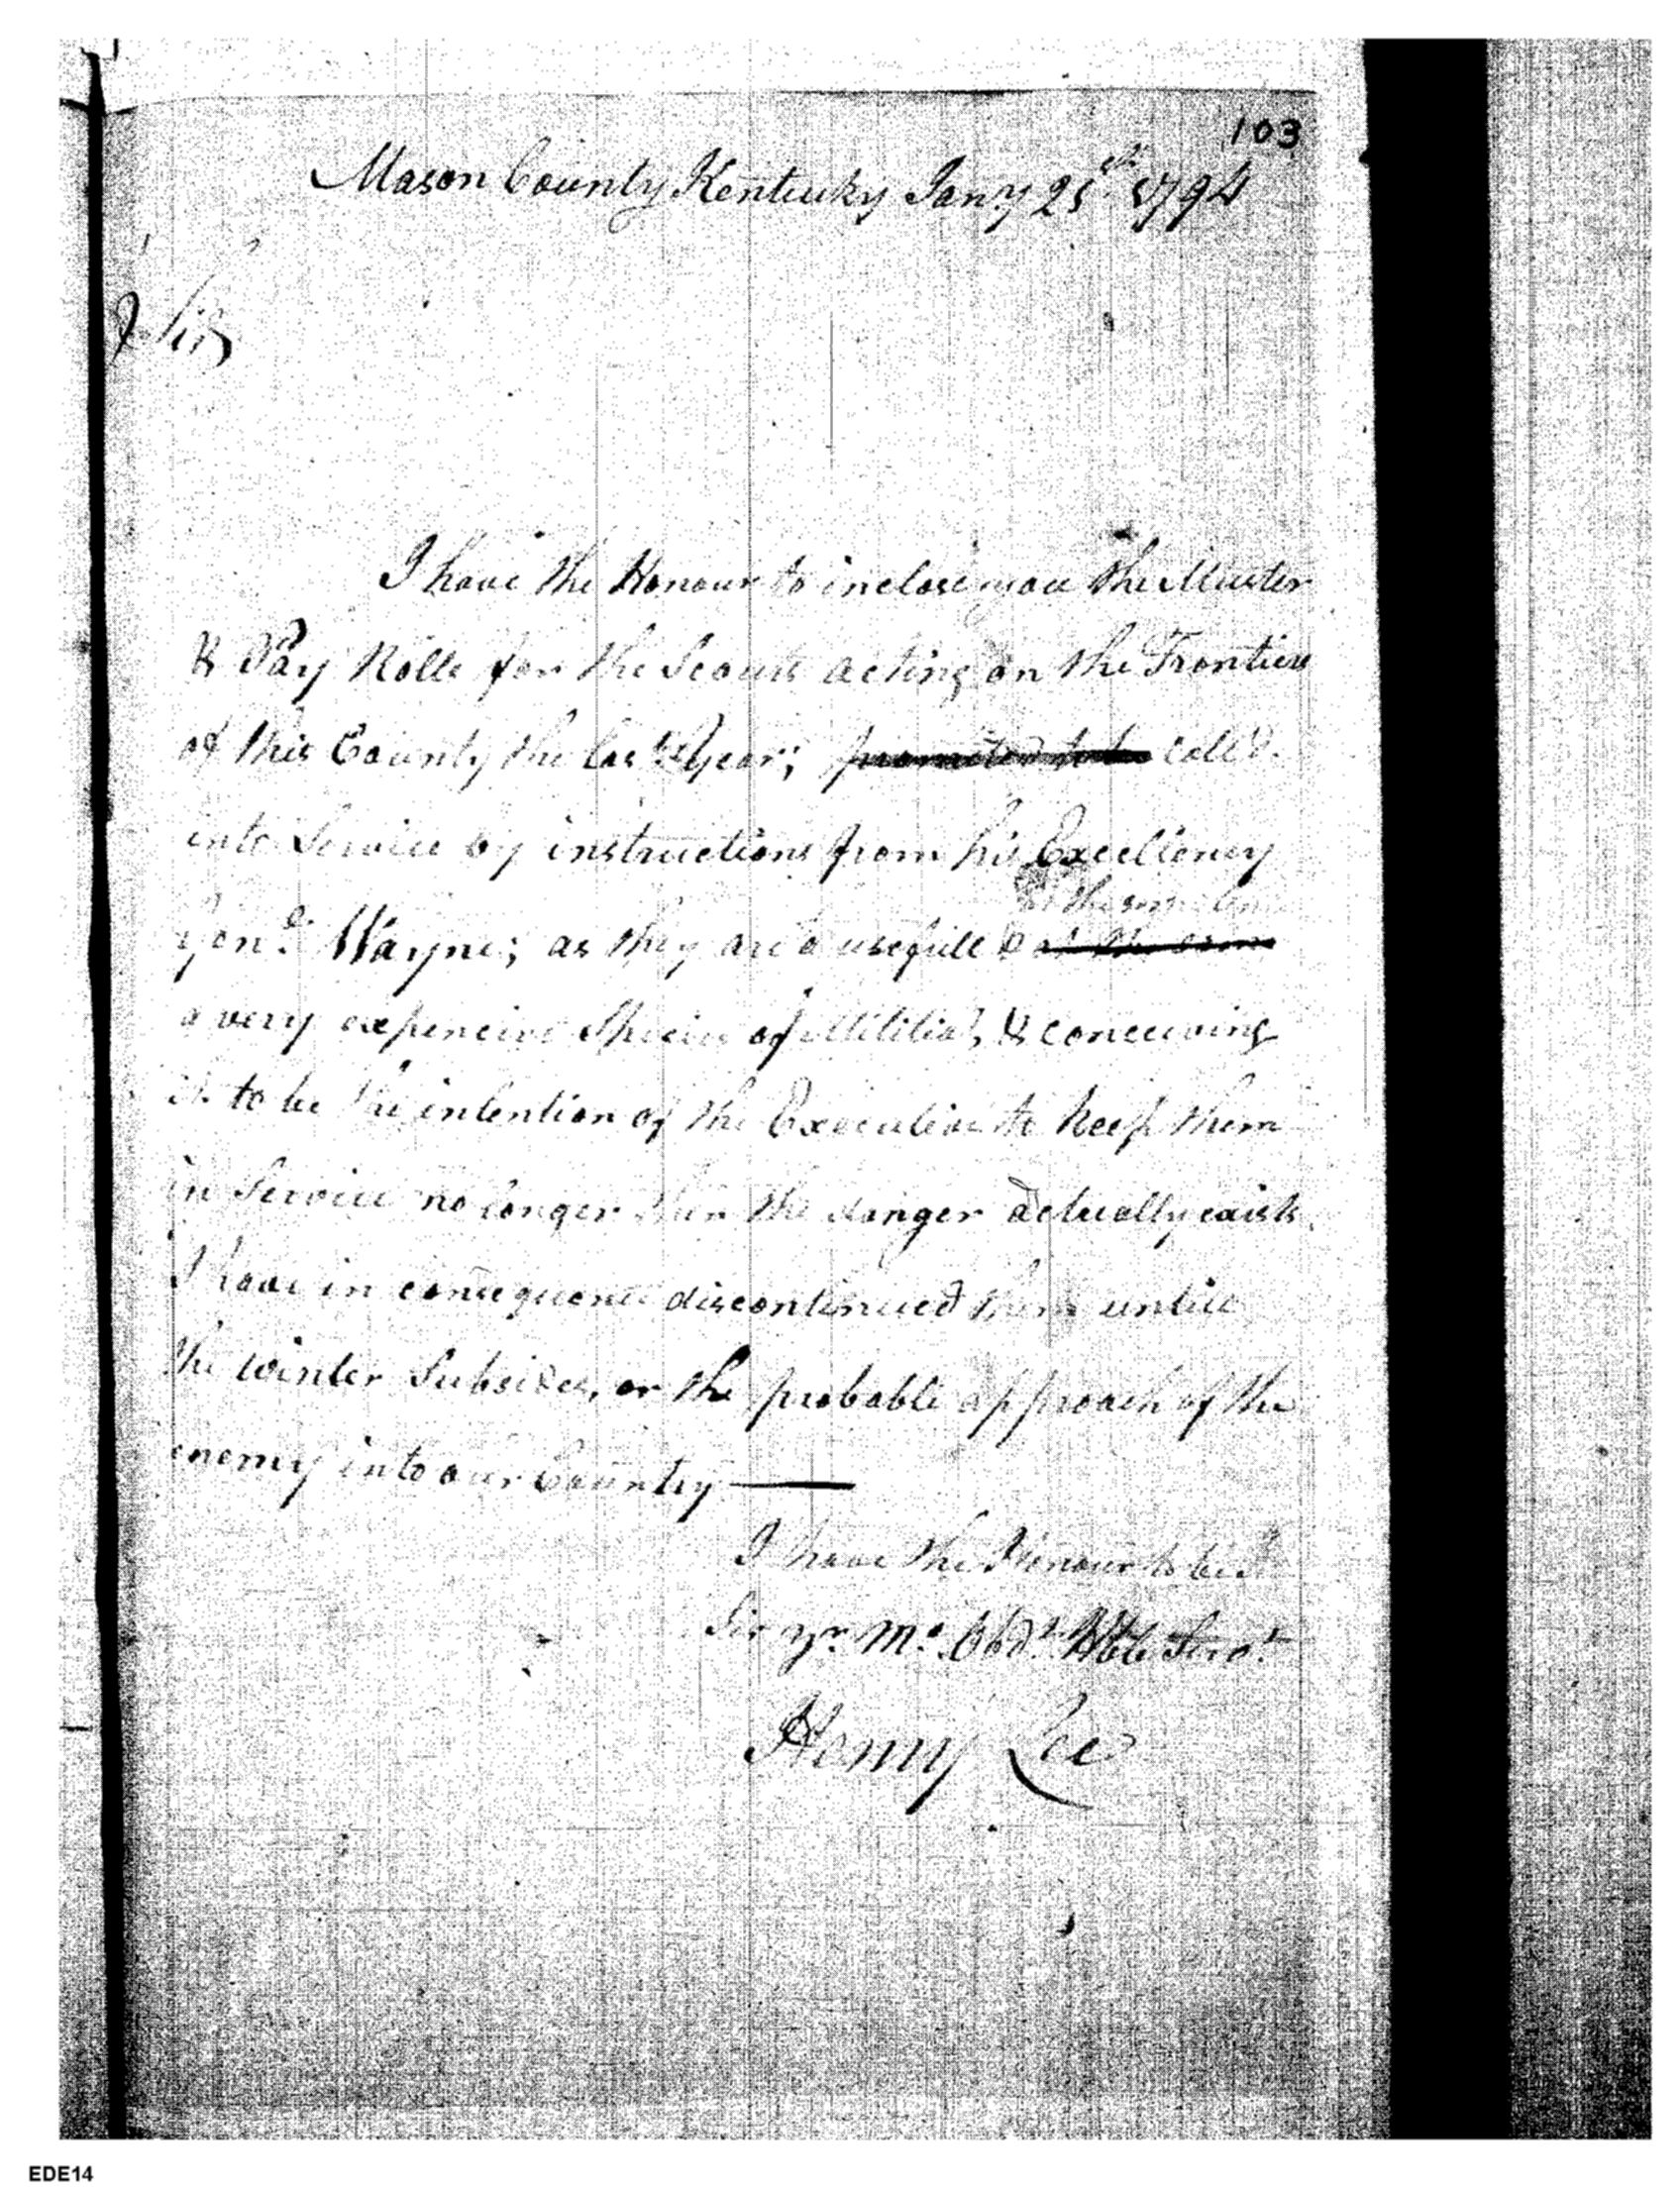 103
Mason County Kentucky Jany 25th 1794
Sir
I have the Honour to inclose you the Muster
& Pay Rolls for the Scouts acting on the Frontiers
of this County the last Year; call'd
into Service by instructions from his Excellency
at the same time
Genl. Wayne; as they are a usefull & at the same
a very expencive Species of Militia, & conceiving
it to be the intention of the Executive to keep them
in Service no longer than the danger actually exists
I have in consequence discontinued them untill
the winter Subsides, or the probable approach of the
enemy into our Country —
I have the Honour to be
Sir yr. Mo. Obdt. Hble Servt.
Henry Lee
EDE14